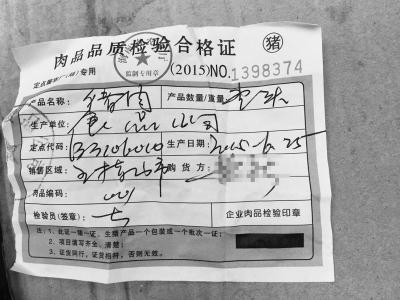 肉品品质检验合格证 猪
定点屠宰厂(场)专用 监制专用章 (2015) NO.1398374
产品名称: 猪肉 产品数量/重量: 壹头
生产单位: 食品公司
定点代码: B3106010 生产日期: 2015.6.25
销售区域: 市 购货方:
肉品编码:
检验员(签章): 企业肉品检验印章
注:1、此证一猪一证、生猪产品一个包装或一个批次一证;
2、项目填写齐全、清楚;
3、证货同行,证货相符,否则无效。